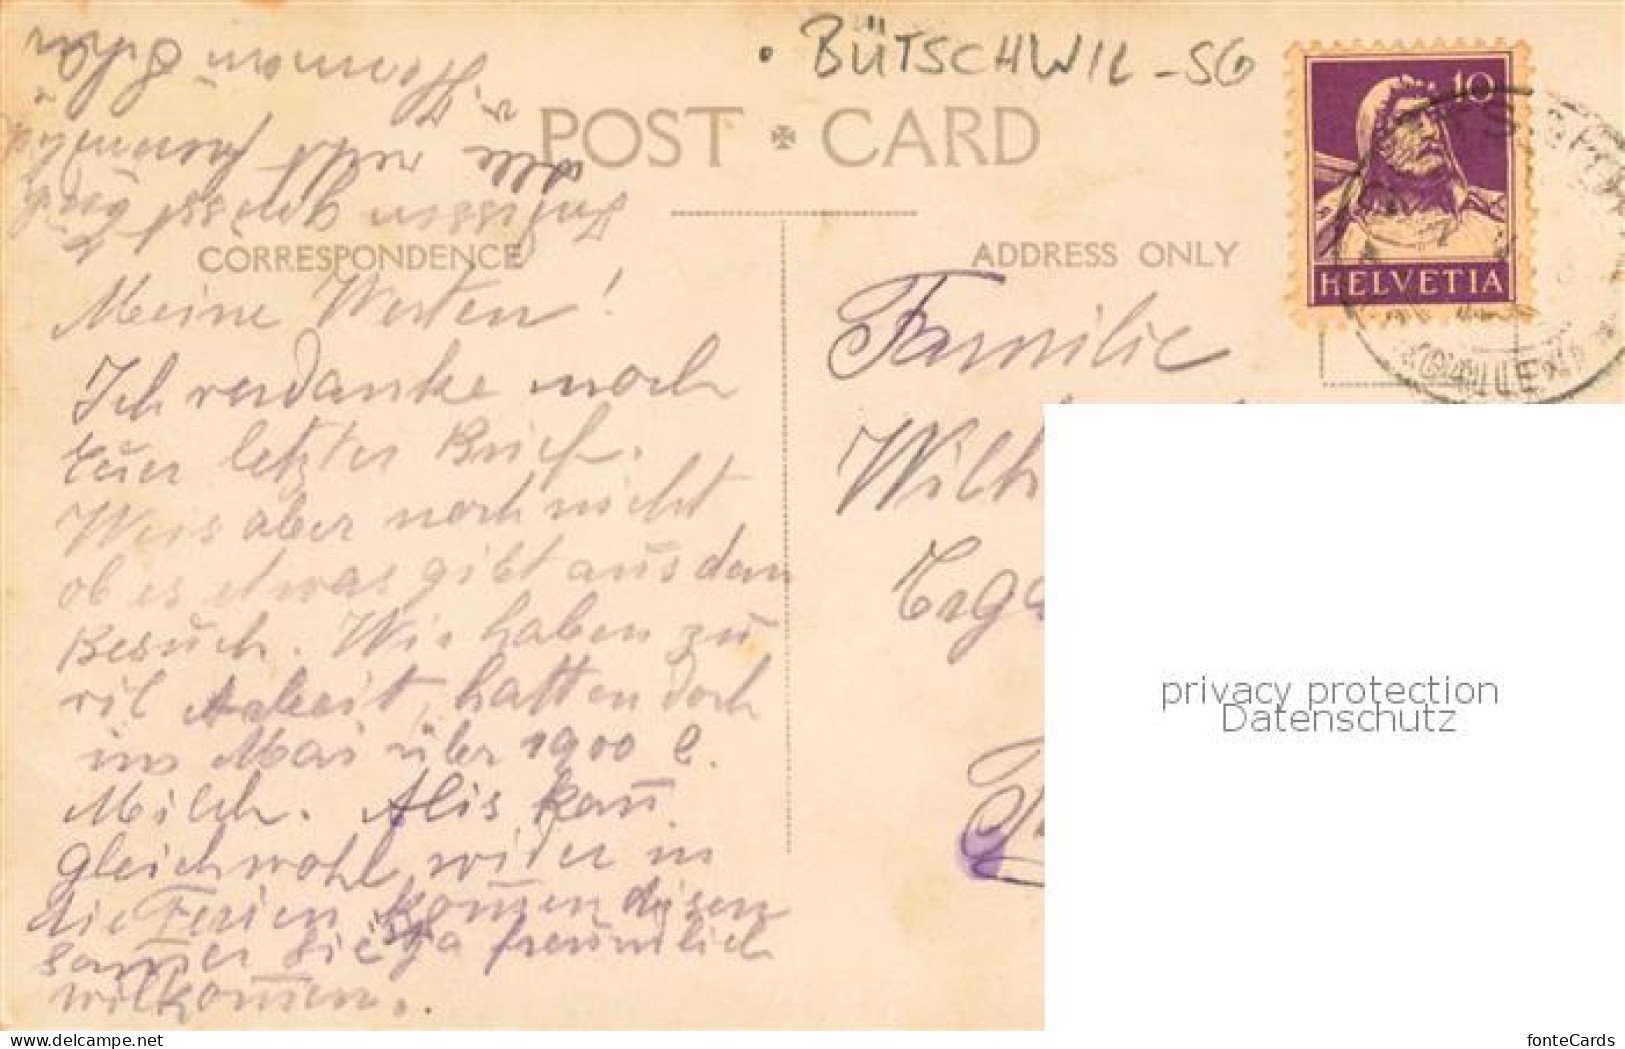 • BÜTSCHWIL - SG
POST CARD
CORRESPONDENCE
ADDRESS ONLY
10
HELVETIA
Meine Werten!
Ich verdanke noch
Euer letzter Brief.
Weis aber noch nicht
ob es etwas gibt aus dem
Besuch. Wir haben zu
vil Arbeit, hatten doch
im Mai über 1900 l.
Milch. Alis kan̄
gleichwohl wider in
die Ferien kom̄en disen
Som̄er Sie ist ja freundlich
wilkom̄en.
alle recht
Familie
Wilh
privacy protection
Datenschutz
www.delcampe.net
fonteCards